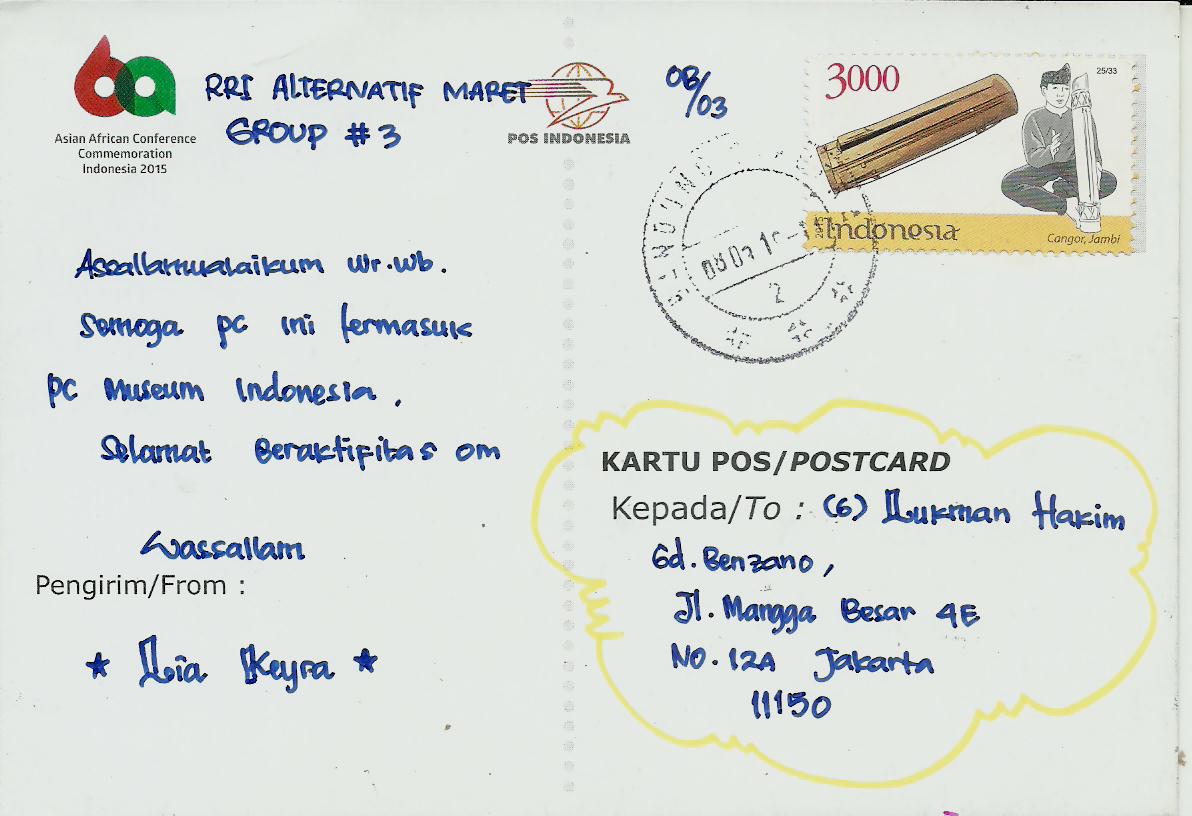 Asian African Conference
Commemoration
Indonesia 2015
RRI ALTERNATIF MARET
GROUP #3
POS INDONESIA
08/03
3000
25/33
Indonesia
2015
Cangor, Jambi
BANDUNG
2
Assallamualaikum Wr.Wb.
Semoga pc ini termasuk
pc Museum Indonesia,
Selamat Beraktifitas om
Wassallam
Pengirim/From :
* Lia Keyra *
KARTU POS/POSTCARD
Kepada/To : (6) Lukman Hakim
Gd. Benzano,
Jl. Mangga Besar 4E
No. 12A Jakarta
11150